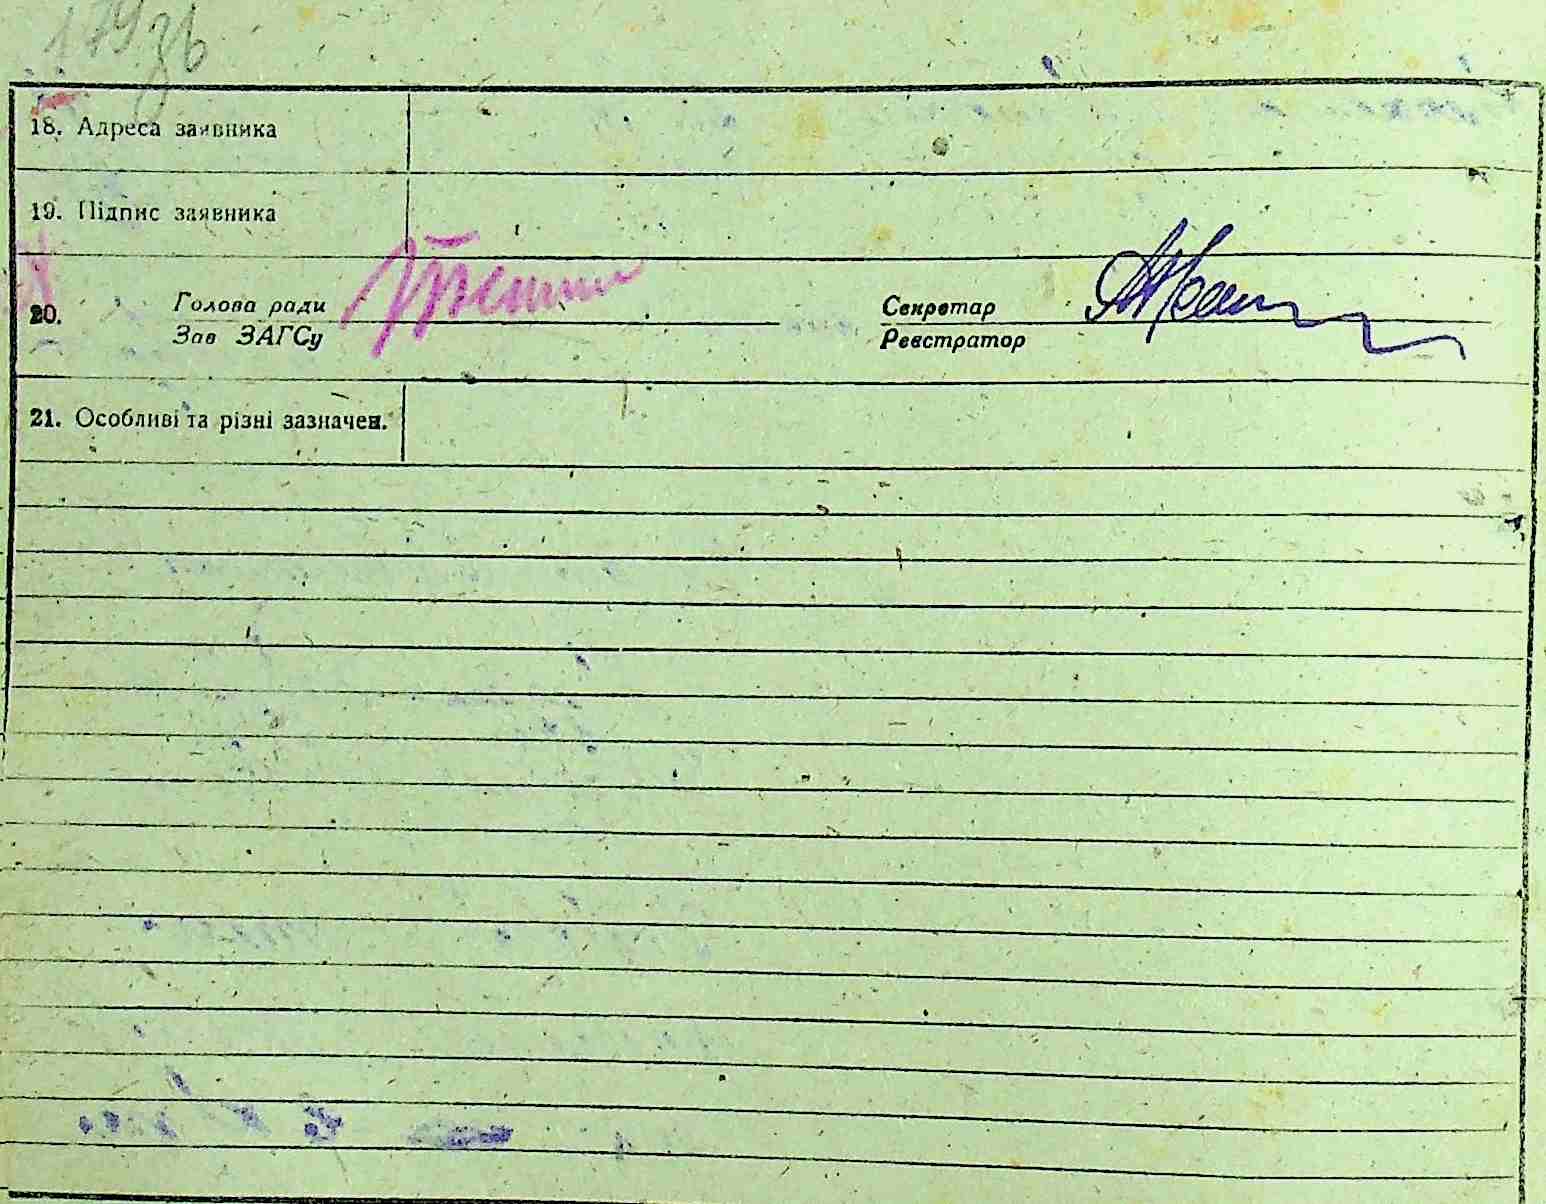 179зв
18. Адреса заявника
19. Підпис заявника
20. Голова ради Секретар
Зав ЗАГСу Реєстратор
21. Особливі та різні зазначен.